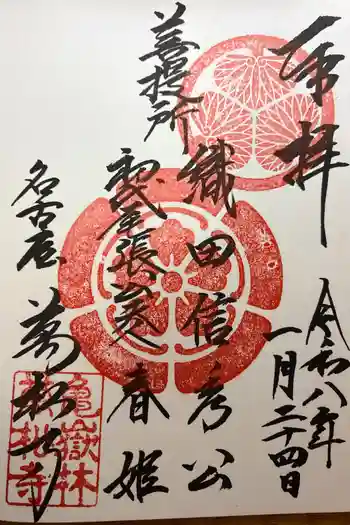 奉拝
令和八年
一月二十四日
菩提所
織田信秀公
初代尾張 春姫
名古屋
萬松寺
亀嶽林
萬松寺